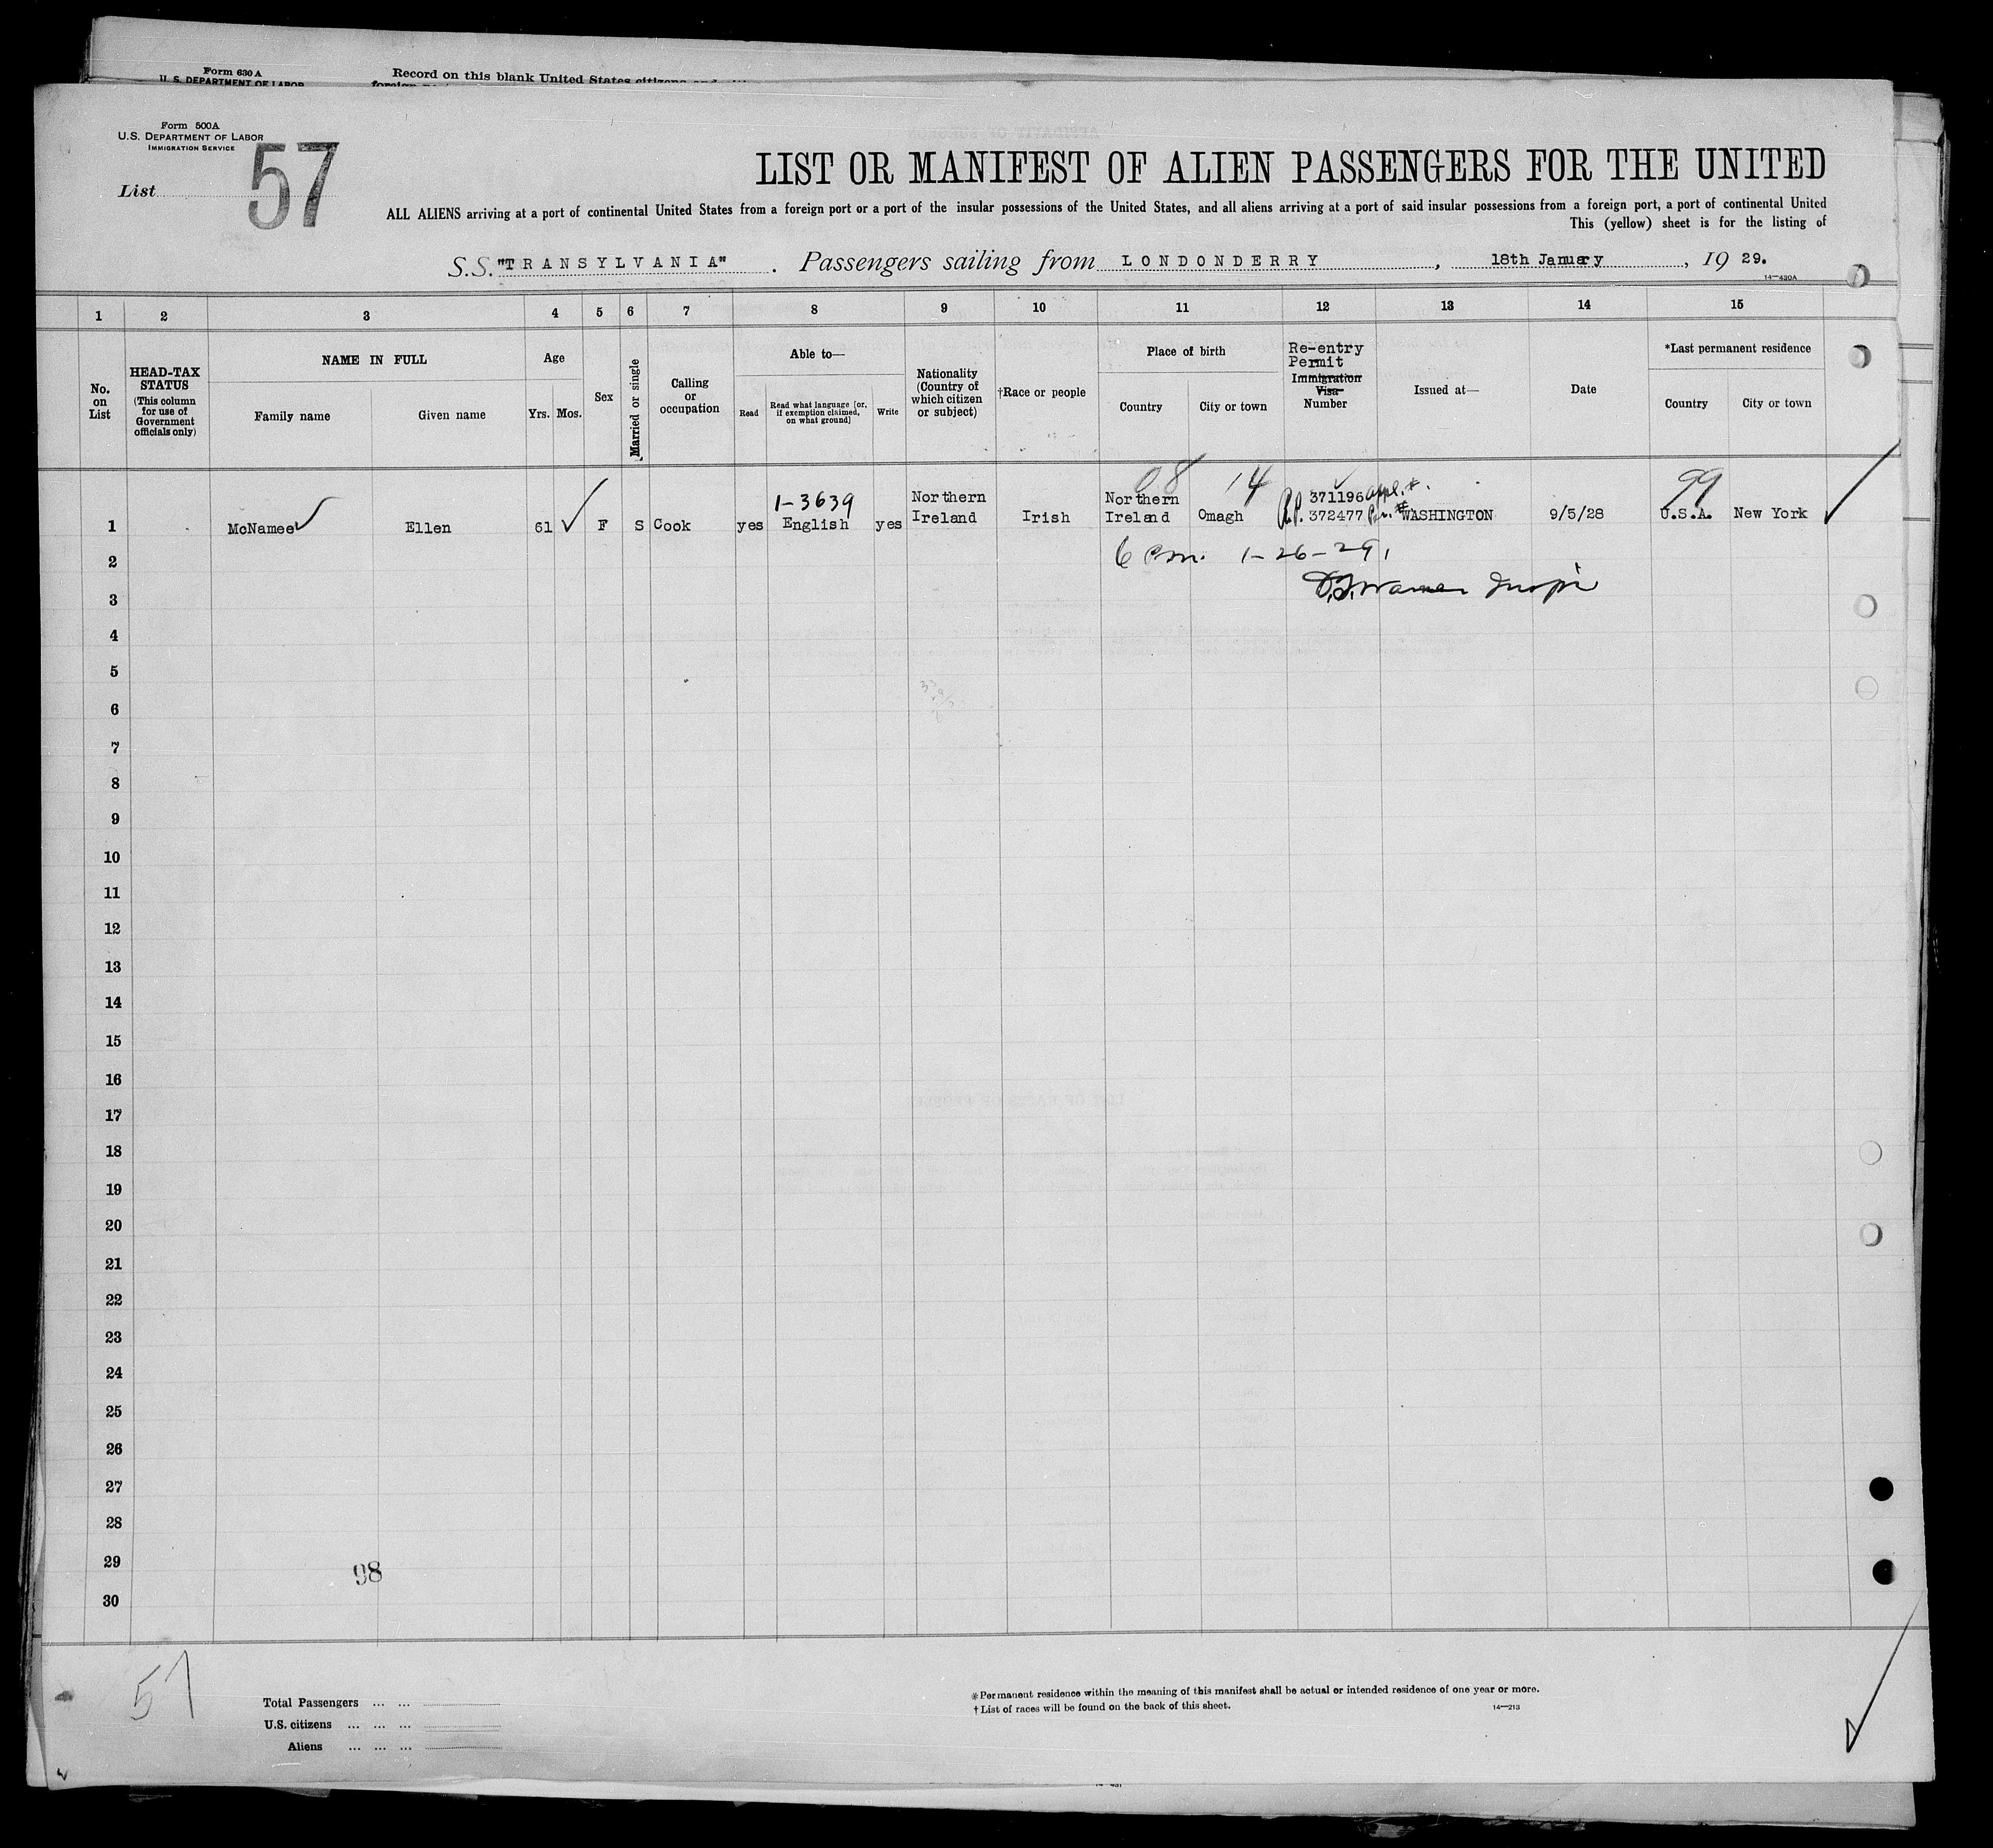 Form 630 A
U. S. DEPARTMENT OF LABOR
Record on this blank United States citizens and
Form 500A
U.S. DEPARTMENT OF LABOR
IMMIGRATION SERVICE
List 57
LIST OR MANIFEST OF ALIEN PASSENGERS FOR THE UNITED
ALL ALIENS arriving at a port of continental United States from a foreign port or a port of the insular possessions of the United States, and all aliens arriving at a port of said insular possessions from a foreign port, a port of continental United
This (yellow) sheet is for the listing of
S.S. "TRANSYLVANIA". Passengers sailing from LONDONDERRY, 18th January, 19 29.
14—430A
1 2 3 4 5 6 7 8 9 10 11 12 13 14 15
No. on List
HEAD-TAX STATUS (This column for use of Government officials only)
NAME IN FULL
Family name Given name
Age
Yrs. Mos.
Sex
Married or single
Calling or occupation
Able to—
Read
Read what language [or, if exemption claimed, on what ground]
Write
Nationality (Country of which citizen or subject)
†Race or people
Place of birth
Country City or town
Re-entry Permit
Immigration Visa Number
Issued at—
Date
*Last permanent residence
Country City or town
08 14 99
1-3639
Northern Northern 371196 Appl. #.
1 McNamee Ellen 61 F S Cook yes English yes Ireland Irish Ireland Omagh R.P. 372477 Per. # WASHINGTON 9/5/28 U.S.A. New York
2 6 cm. 1-26-29,
3 Inspr
4
5
6
7
8
9
10
11
12
13
14
15
16
17
18
19
20
21
22
23
24
25
26
27
28
29 98
30
57
Total Passengers ... ...
U.S. citizens ... ... ...
Aliens ... ... ...
*Permanent residence within the meaning of this manifest shall be actual or intended residence of one year or more.
†List of races will be found on the back of this sheet.
14—213